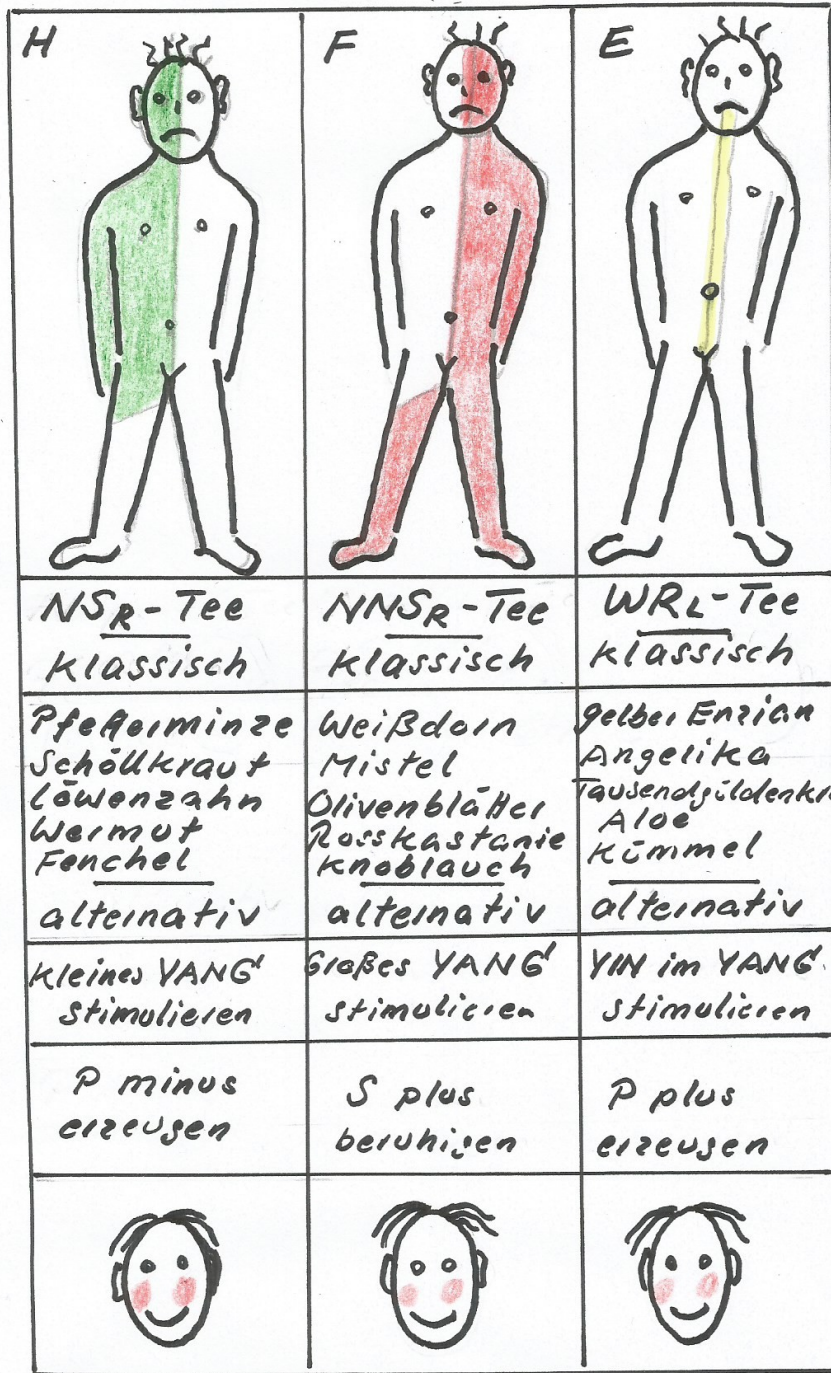 H
F
E
NSR-Tee
klassisch
NNSR-Tee
klassisch
WRL-Tee
klassisch
Pfefferminze
Schöllkraut
Löwenzahn
Wermut
Fenchel
alternativ
Weißdorn
Mistel
Olivenblätter
Rosskastanie
Knoblauch
alternativ
gelber Enzian
Angelika
Tausendgüldenkr
Aloe
Kümmel
alternativ
kleines YANG
stimulieren
Großes YANG
stimulieren
YIN im YANG
stimulieren
P minus
erzeugen
S plus
beruhigen
P plus
erzeugen